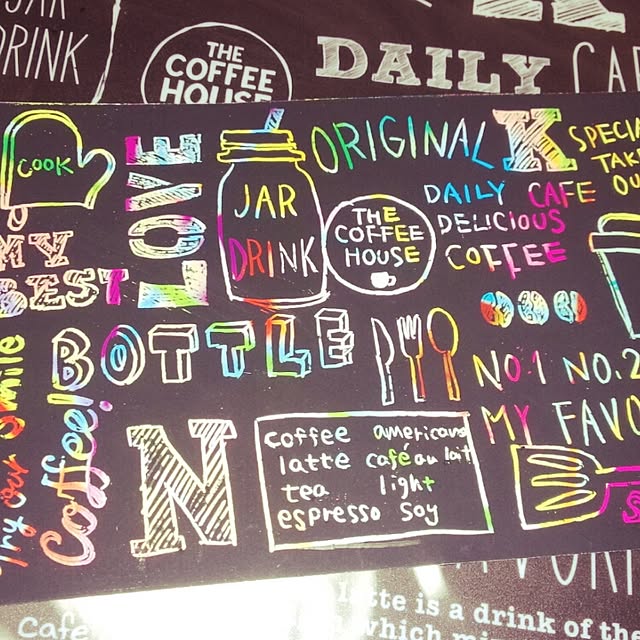 JAR
DRINK
THE
COFFEE
HOUSE
DAILY
COOK
LOVE
JAR
DRINK
ORIGINAL
K
THE
COFFEE
HOUSE
DAILY CAFE
DELICIOUS
COFFEE
MY
BEST
BOTTLE
NO.1 NO.2
MY
Coffee!
N
coffee americano
latte café au lait
tea light
espresso soy
latte is a drink of the
which
Café